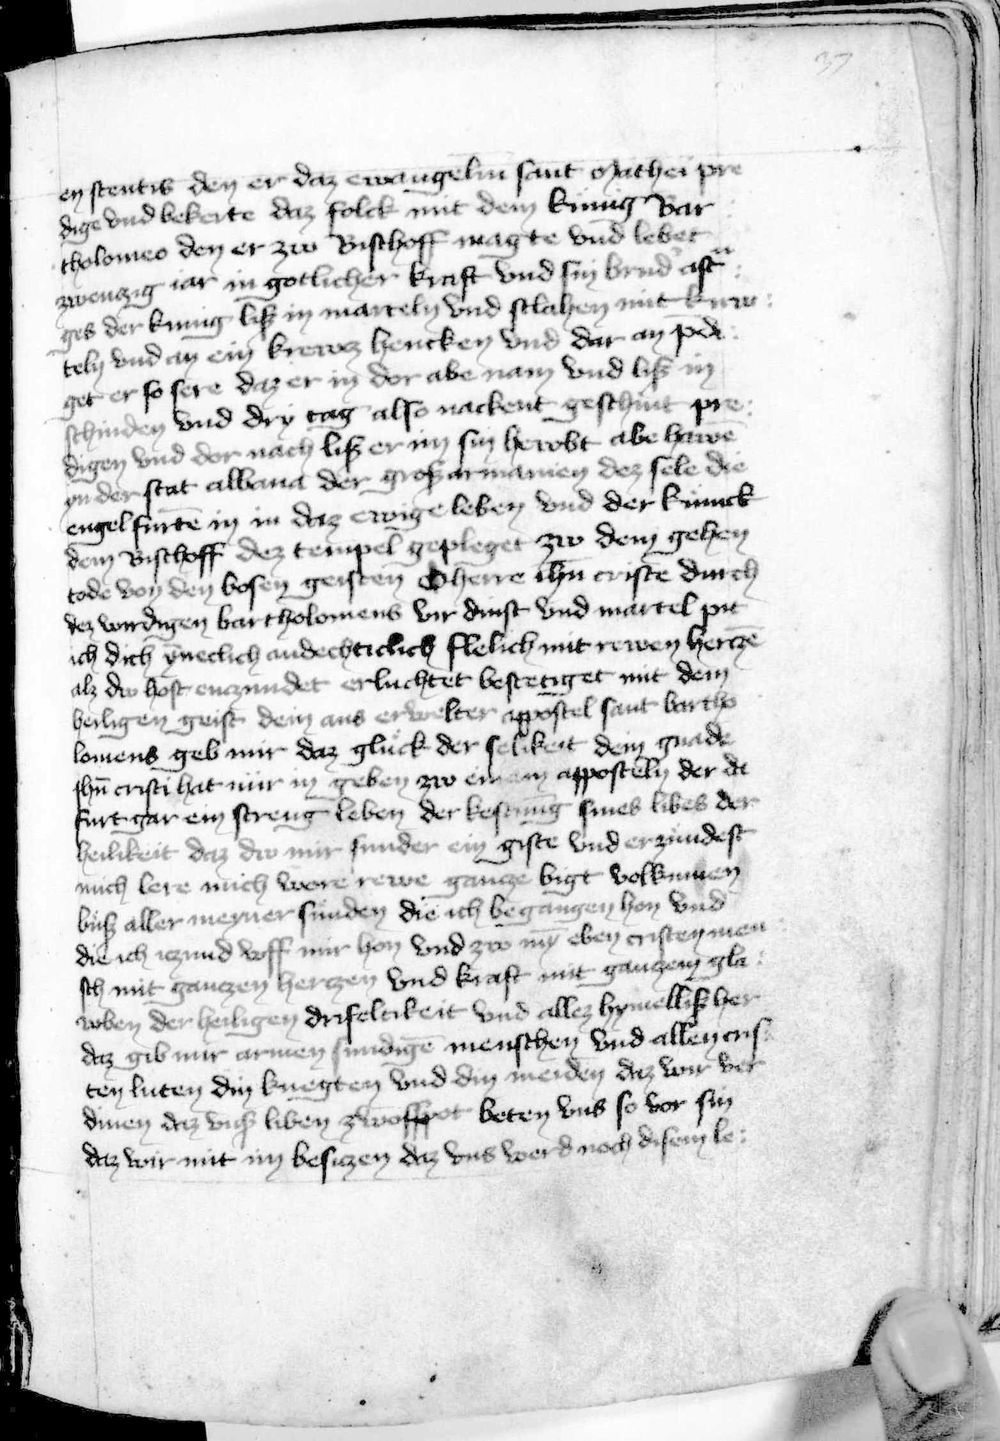 37
en stentis den er daz ewangelin sant Mathei pre
dige vnd bekerte daz folck mit dem kunig Bar
tholomeo den er zw Bischoff magte vnd lebet
zwenzig iar in gotlicher kraft vnd sin brud' astr
ges der kunig liß in marteln vnd sclahen mit knw:
teln vnd an ein krewcz hencken vnd dar an pdi:
get er so sere daz er in dor abe nam vnd liß in
schinden vnd dry tag also nackent geschint pre:
digen vnd dor nach liß er im sin hewbt abe hawē
yn der stat albana der groß armanien dez sele die
engel furtē in in daz ewige leben vnd der kunick
dem Bischoff dez tempel gepleget zw dem gehen
tode von den bosen geisten O herre ihū criste durch
dez wirdigen bartholomeus vir dinst vnd martel pit
ich dich ynneclich andechticlich flelich mit rewen herczē
alz dw host enczundet erluchtet bestetiget mit dem
heiligen geist dein aus erwelter appostel sant bartho
lomeus geb mir daz glück der selikeit dein gnade
ihū cristi hat mir in geben zw einem apposteln der da
furt gar ein streng leben der kestung sines libes der
heilikeit daz dw mir sunder ein giste vnd erzundest
mich lere mich wore rewe gancze bigt volkumen
buß aller meyner sunden die ich begangen hon vnd
die ich iczund vff mir hon vnd zw my eben cristen men
sch mit ganczen herczen vnd kraft mit ganczem gla:
wben der heiligen drifeltikeit vnd allez hymelliß her
daz gib mir armen sundigē menschen vnd allen cris:
ten luten din knegten vnd din meiden daz wir ver
dinen daz vnß liben zwofffpot beten vns so vor sin
daz wir mit im besiczen daz vns werd noch disem le: